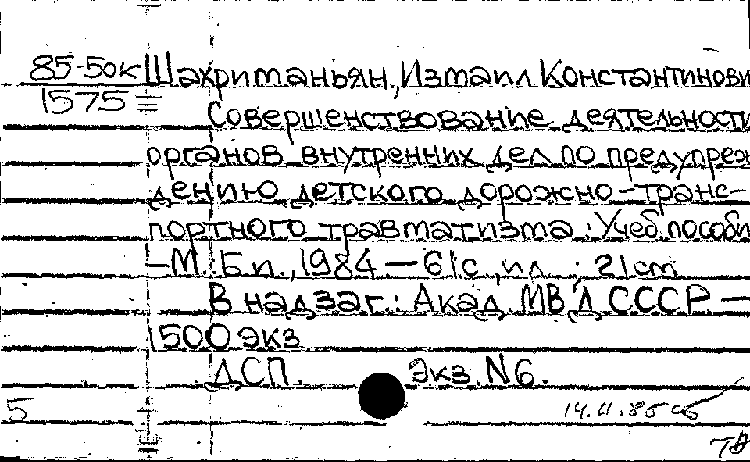 85-50к Шахриманьян, Измаил Константинови
1575
Совершенствование деятельности
органов внутренних дел по предупреж
дению детского дорожно-транс-
портного травматизма: Учеб. пособи
-М.: Б.и., 1984 - 61с., ил.; 21 cm
В надзаг.: Акад. МВД СССР -
500 экз
ДСП. Экз. N6.
5 14.11.85